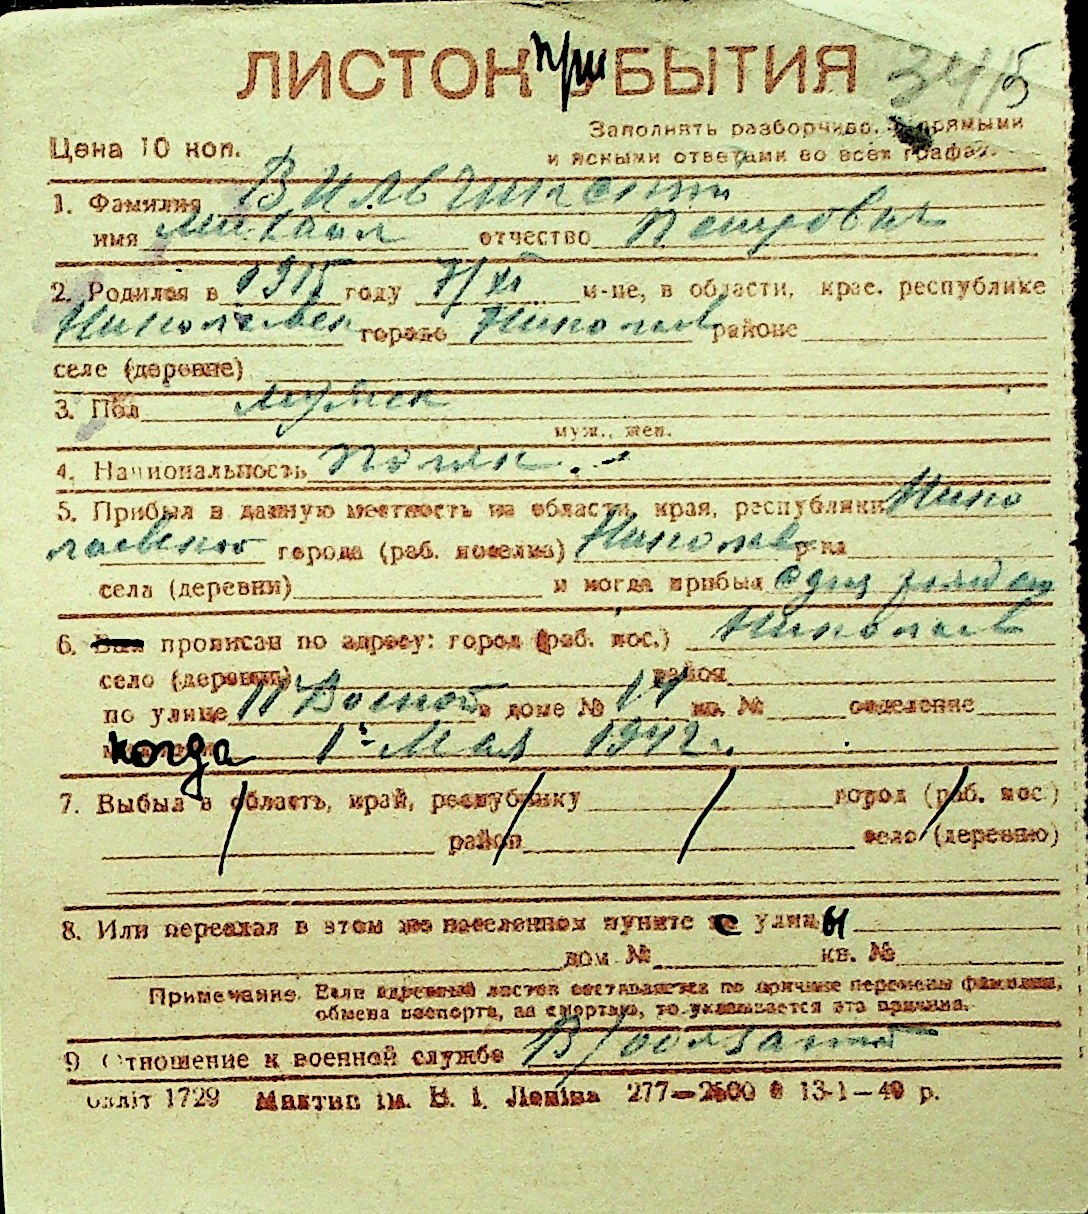 ЛИСТОК при БЫТИЯ 3415
Цена 10 коп.
Заполнять разборчиво, прямыми
и ясными ответами во всех графах.
1. Фамилия Вильчинский
имя Михаил отчество Петрович
2. Родился в 1915 году 7/XI м-це, в области, крае, республике
Николаевск городе Николаев районе
селе (деревне)
3. Пол мужск
муж., жен.
4. Национальность поляк.
5. Прибыл в данную местность из области, края, республики Нико
лаевской города (раб. поселка) Николаев р-на
села (деревни) и когда прибыл
6. Был прописан по адресу: город (раб. пос.) Николаев
село (деревня) район
по улице 11 Военной в доме № 14 кв. № отделение
когда 1го Мая 1942 г.
7. Выбыл в область, край, республику город (раб. пос.)
район село (деревню)
8. Или переехал в этом же населенном пункте с улицы
дом № кв. №
Примечание. Если адресный листок составляется по причине перемены фамилии,
обмена паспорта, за смертью, то указывается эта причина.
9. Отношение к военной службе В/обязаный
Облліт 1729 ім. В. І. Леніна 277—2500 13-1—40 р.